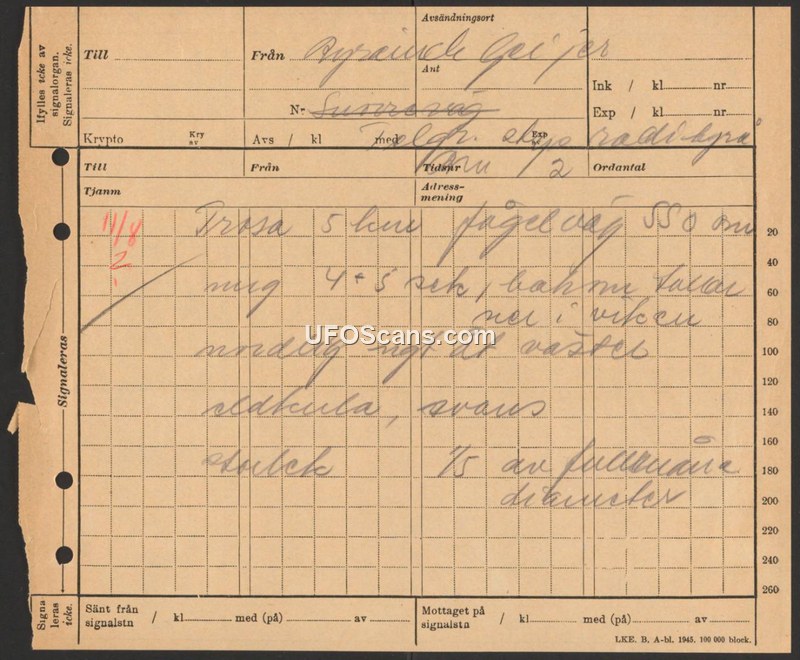 Ifylles icke av signalorgan.
Signaleras icke.
Avsändningsort
Till
Från Geijer
Ant
Nr
Ink / kl nr
Exp / kl nr
Krypto
Kry av
Avs / kl med
Exp av
Till
Från
Tidsnr 2
Ordantal
Tjanm
Adress-
mening
11/8
2
Trosa 5 km fågelväg SSO om
mig 4 + 5 sek, bakom tallar
ner i viken
nordlig rigt åt väster
eldkula, svans
storlek 1/5 av fullmåne
diameter
20
40
60
80
100
120
140
160
180
200
220
240
260
Signaleras
UFOScans.com
Signa-
leras
icke.
Sänt från
signalstn / kl med (på) av
Mottaget på
signalstn / kl med (på) av
LKE. B. A-bl. 1945. 100 000 block.